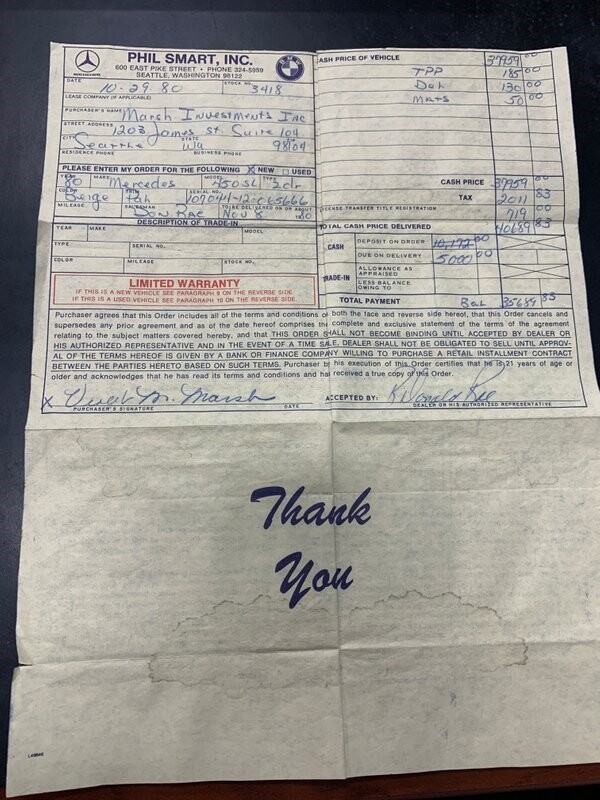 PHIL SMART, INC.
600 EAST PIKE STREET • PHONE 324-5959
SEATTLE, WASHINGTON 98122
DATE 10-29-80 STOCK NO. 3418
LEASE COMPANY (IF APPLICABLE)
PURCHASER'S NAME Marsh Investments Inc
STREET ADDRESS 1203 James St. Suite 104
CITY Seattle STATE Wa 98104
RESIDENCE PHONE BUSINESS PHONE
PLEASE ENTER MY ORDER FOR THE FOLLOWING X NEW USED
YEAR 80 MAKE Mercedes MODEL 450SL TYPE 2dr
COLOR Beige TRIM SERIAL NO. 107044-12-065666
MILEAGE SALESMAN Don Rae TO BE DELIVERED ON OR ABOUT Nov 8 1980
DESCRIPTION OF TRADE-IN
YEAR MAKE MODEL
TYPE SERIAL NO.
COLOR MILEAGE STOCK NO.
LIMITED WARRANTY
IF THIS IS A NEW VEHICLE SEE PARAGRAPH 9 ON THE REVERSE SIDE.
IF THIS IS A USED VEHICLE SEE PARAGRAPH 10 ON THE REVERSE SIDE.
CASH PRICE OF VEHICLE 39959 00
TPP 185 00
130 00
50 00
CASH PRICE 39959 00
TAX 2011 83
LICENSE-TRANSFER TITLE REGISTRATION 719 00
TOTAL CASH PRICE DELIVERED 40689 83
CASH DEPOSIT ON ORDER 00
DUE ON DELIVERY 5000 00
TRADE-IN ALLOWANCE AS APPRAISED
LESS BALANCE OWING TO
TOTAL PAYMENT Bal 35689 85
Purchaser agrees that this Order includes all of the terms and conditions on both the face and reverse side hereof, that this Order cancels and
supersedes any prior agreement and as of the date hereof comprises the complete and exclusive statement of the terms of the agreement
relating to the subject matters covered hereby, and that THIS ORDER SHALL NOT BECOME BINDING UNTIL ACCEPTED BY DEALER OR
HIS AUTHORIZED REPRESENTATIVE AND IN THE EVENT OF A TIME SALE, DEALER SHALL NOT BE OBLIGATED TO SELL UNTIL APPROV-
AL OF THE TERMS HEREOF IS GIVEN BY A BANK OR FINANCE COMPANY WILLING TO PURCHASE A RETAIL INSTALLMENT CONTRACT
BETWEEN THE PARTIES HERETO BASED ON SUCH TERMS. Purchaser by his execution of this Order certifies that he is 21 years of age or
older and acknowledges that he has read its terms and conditions and has received a true copy of this Order.
X M. Marsh ACCEPTED BY:
PURCHASER'S SIGNATURE DATE DEALER OR HIS AUTHORIZED REPRESENTATIVE
Thank
You